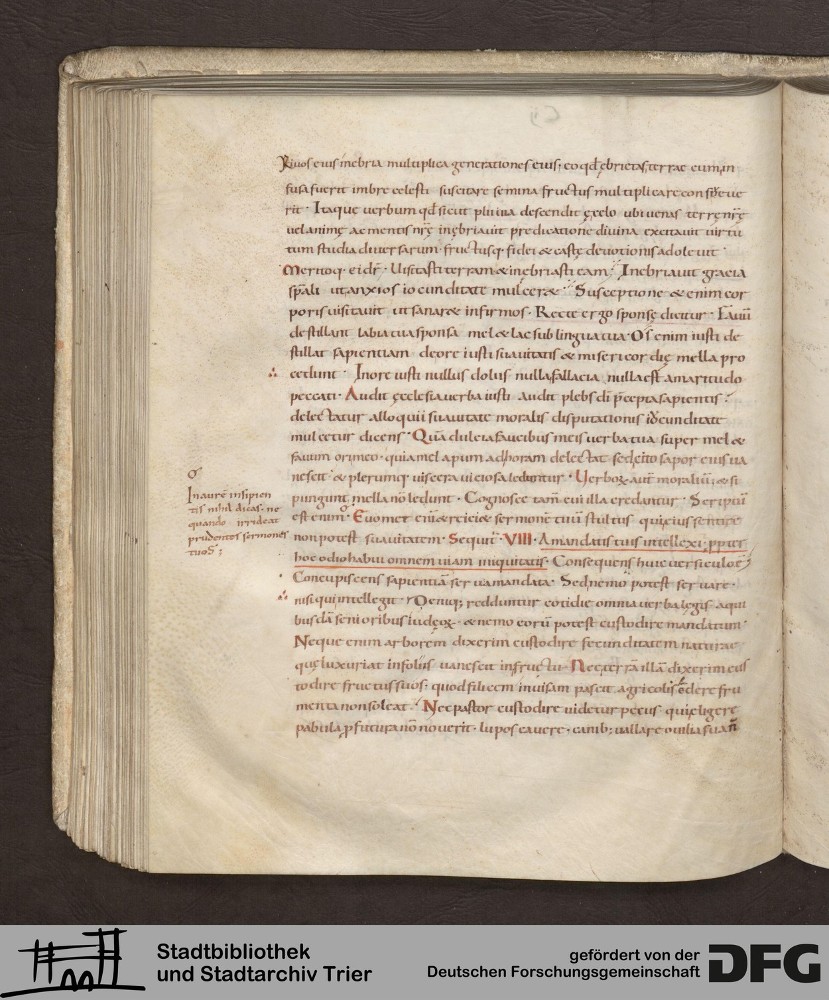 Riuos eius inebria multiplica generationes eius; eo qđ ebrietas terrae cum in
fusa fuerit imbre celesti suscitare semina fructus multiplicare consueue
rit · Itaque uerbum qđ sicut pluuia descendit ęcęlo ubi uenas terrę nr̄ę
uel animę ac mentis nr̄ę inębriauit predicatione diuina excitauit uirtu
tum studia diuersarum · fructusq· fidei & castę deuotionis adoleuit ·
Meritoq· ei dr̄ · Uisitasti terram & inebriasti eam · Inebriauit gracia
sp̄ali ut anxios iocunditate mulcer& · Susceptione & enim cor
poris uisitauit ut sanar& infirmos · Recte ergo sponsę dicitur · Fauū
destillant labia tua sponsa mel & lac sub lingua tua · Os enim iusti de
stillat sapientiam de ore iusti suauitatis & misericordię mella pro
cedunt · In ore iusti nullus dolus nulla fallacia nulla est amaritudo
peccati · Audit ęcclesia uerba iusti audit plebs dī p̄cepta sapientis
delectatur alloquii suauitate moralis disputationis iocunditate
mulcetur dicens · Quā dulcia faucibus meis uerba tua super mel &
fauum ori meo · quia mel apum ad horam delectat sed cito sapor eius ua
nescit & plerumq· uiscera uiciosa leduntur · Uerboꝝ aut̄ moraliū & si
pungunt mella nō ledunt · Cognosce tam̄ cui illa credantur · Scriptū
est enim · Euomet enī & reiciet sermonē tuū stultus · qui eius sentire
non potest suauitatem · Sequit̄ · VIII · A mandatis tuis intellexi · ppter
hoc odio habui omnem uiam iniquitatis · Consequens huic uersiculo ē
Concupiscens sapientiā serua mandata · Sed nemo potest seruare ·
nisi qui intellegit · Deniq; redduntur cotidie omnia uerba legis a qui
busdā senioribus iudęoꝝ · & nemo eorū potest custodire mandatum ·
Neque enim arborem dixerim custodire fecunditatem naturae
quę luxuriat in foliis uanescit in fructu · Nec terrā illā dixerim cus
todire fructus suos · quod filicem inuisam pascit agricolis edere fru
menta non soleat · Nec pastor custodire uidetur pecus · qui eligere
pabula pfutura non nouerit · lupos cauere · canib; uallare ouilia sua n̄
In aurē insipien
tis nihil dicas · ne
quando irrideat
prudentes sermones
tuos ;
Stadtbibliothek
und Stadtarchiv Trier
gefördert von der
Deutschen Forschungsgemeinschaft
DFG